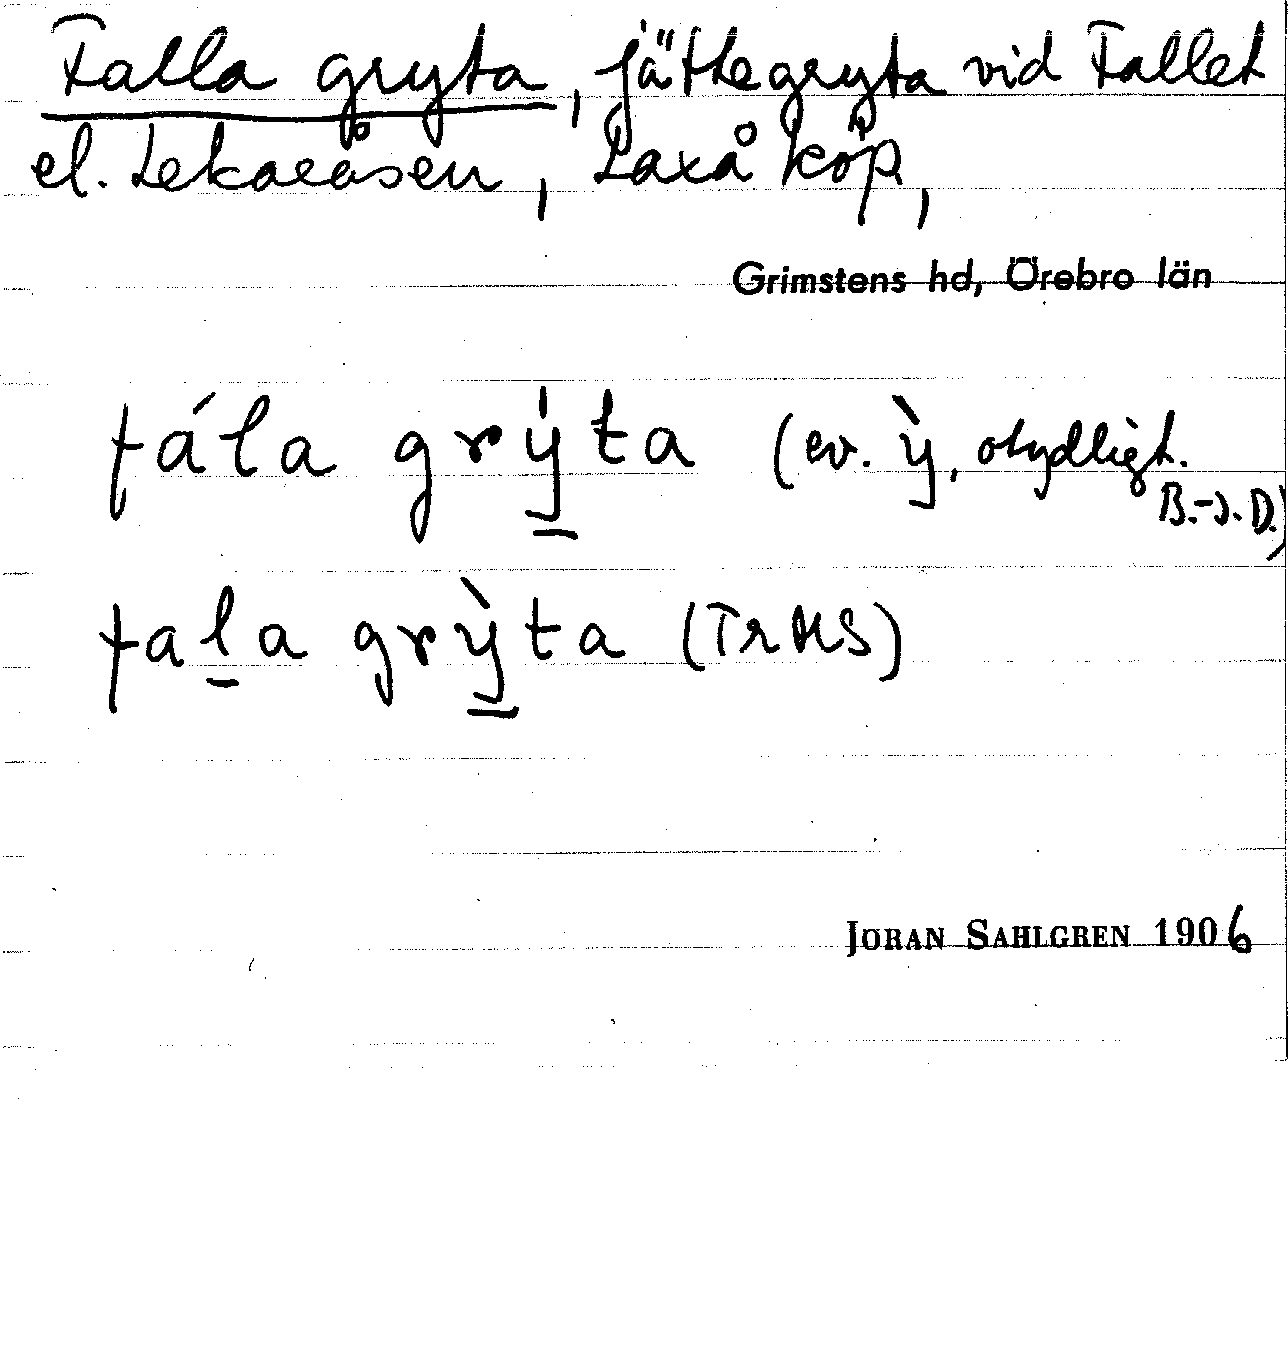 Falla gryta, jättegryta vid Fallet
el. Lekareåsen, Laxå köp,
Grimstens hd, Örebro län
fála grýta (ev. ỳ, otydligt.
B.-J. D.)
fala grỳta (TrHS)
JÖRAN SAHLGREN 1906